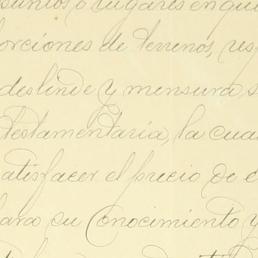 puntos, o lugares en que
porciones de terrenos, res
deslinde y mensura, s
testamentaria, la cua
satisfacer el precio de c
para su Conocimiento y